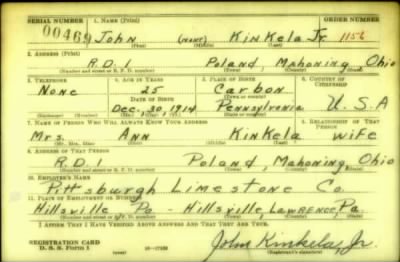 SERIAL NUMBER 1. NAME (Print) ORDER NUMBER
00469 John (NONE) Kinkela Jr. 1156
(First) (Middle) (Last)
2. ADDRESS (Print)
R.D. 1 Poland, Mahoning Ohio
(Number and street or R. F. D. number) (Town) (County) (State)
3. TELEPHONE 4. AGE IN YEARS 5. PLACE OF BIRTH 6. COUNTRY OF CITIZENSHIP
None 25 Carbon
DATE OF BIRTH (Town or county)
Dec. 30, 1914 Pennsylvania U.S.A
(Exchange) (Number) (Mo.) (Day) (Yr.) (State or country)
7. NAME OF PERSON WHO WILL ALWAYS KNOW YOUR ADDRESS 8. RELATIONSHIP OF THAT PERSON
Mrs. Ann Kinkela wife
(Mr., Mrs., Miss) (First) (Middle) (Last)
9. ADDRESS OF THAT PERSON
R.D. 1 Poland, Mahoning Ohio
(Number and street or R. F. D. number) (Town) (County) (State)
10. EMPLOYER'S NAME
Pittsburgh Limestone Co.
11. PLACE OF EMPLOYMENT OR BUSINESS
Hillsville Pa - Hillsville, Lawrence, Pa.
(Number and street or R. F. D. number) (Town) (County) (State)
I AFFIRM THAT I HAVE VERIFIED ABOVE ANSWERS AND THAT THEY ARE TRUE.
REGISTRATION CARD
D. S. S. Form 1 John Kinkela, Jr.
(Registrant's signature)